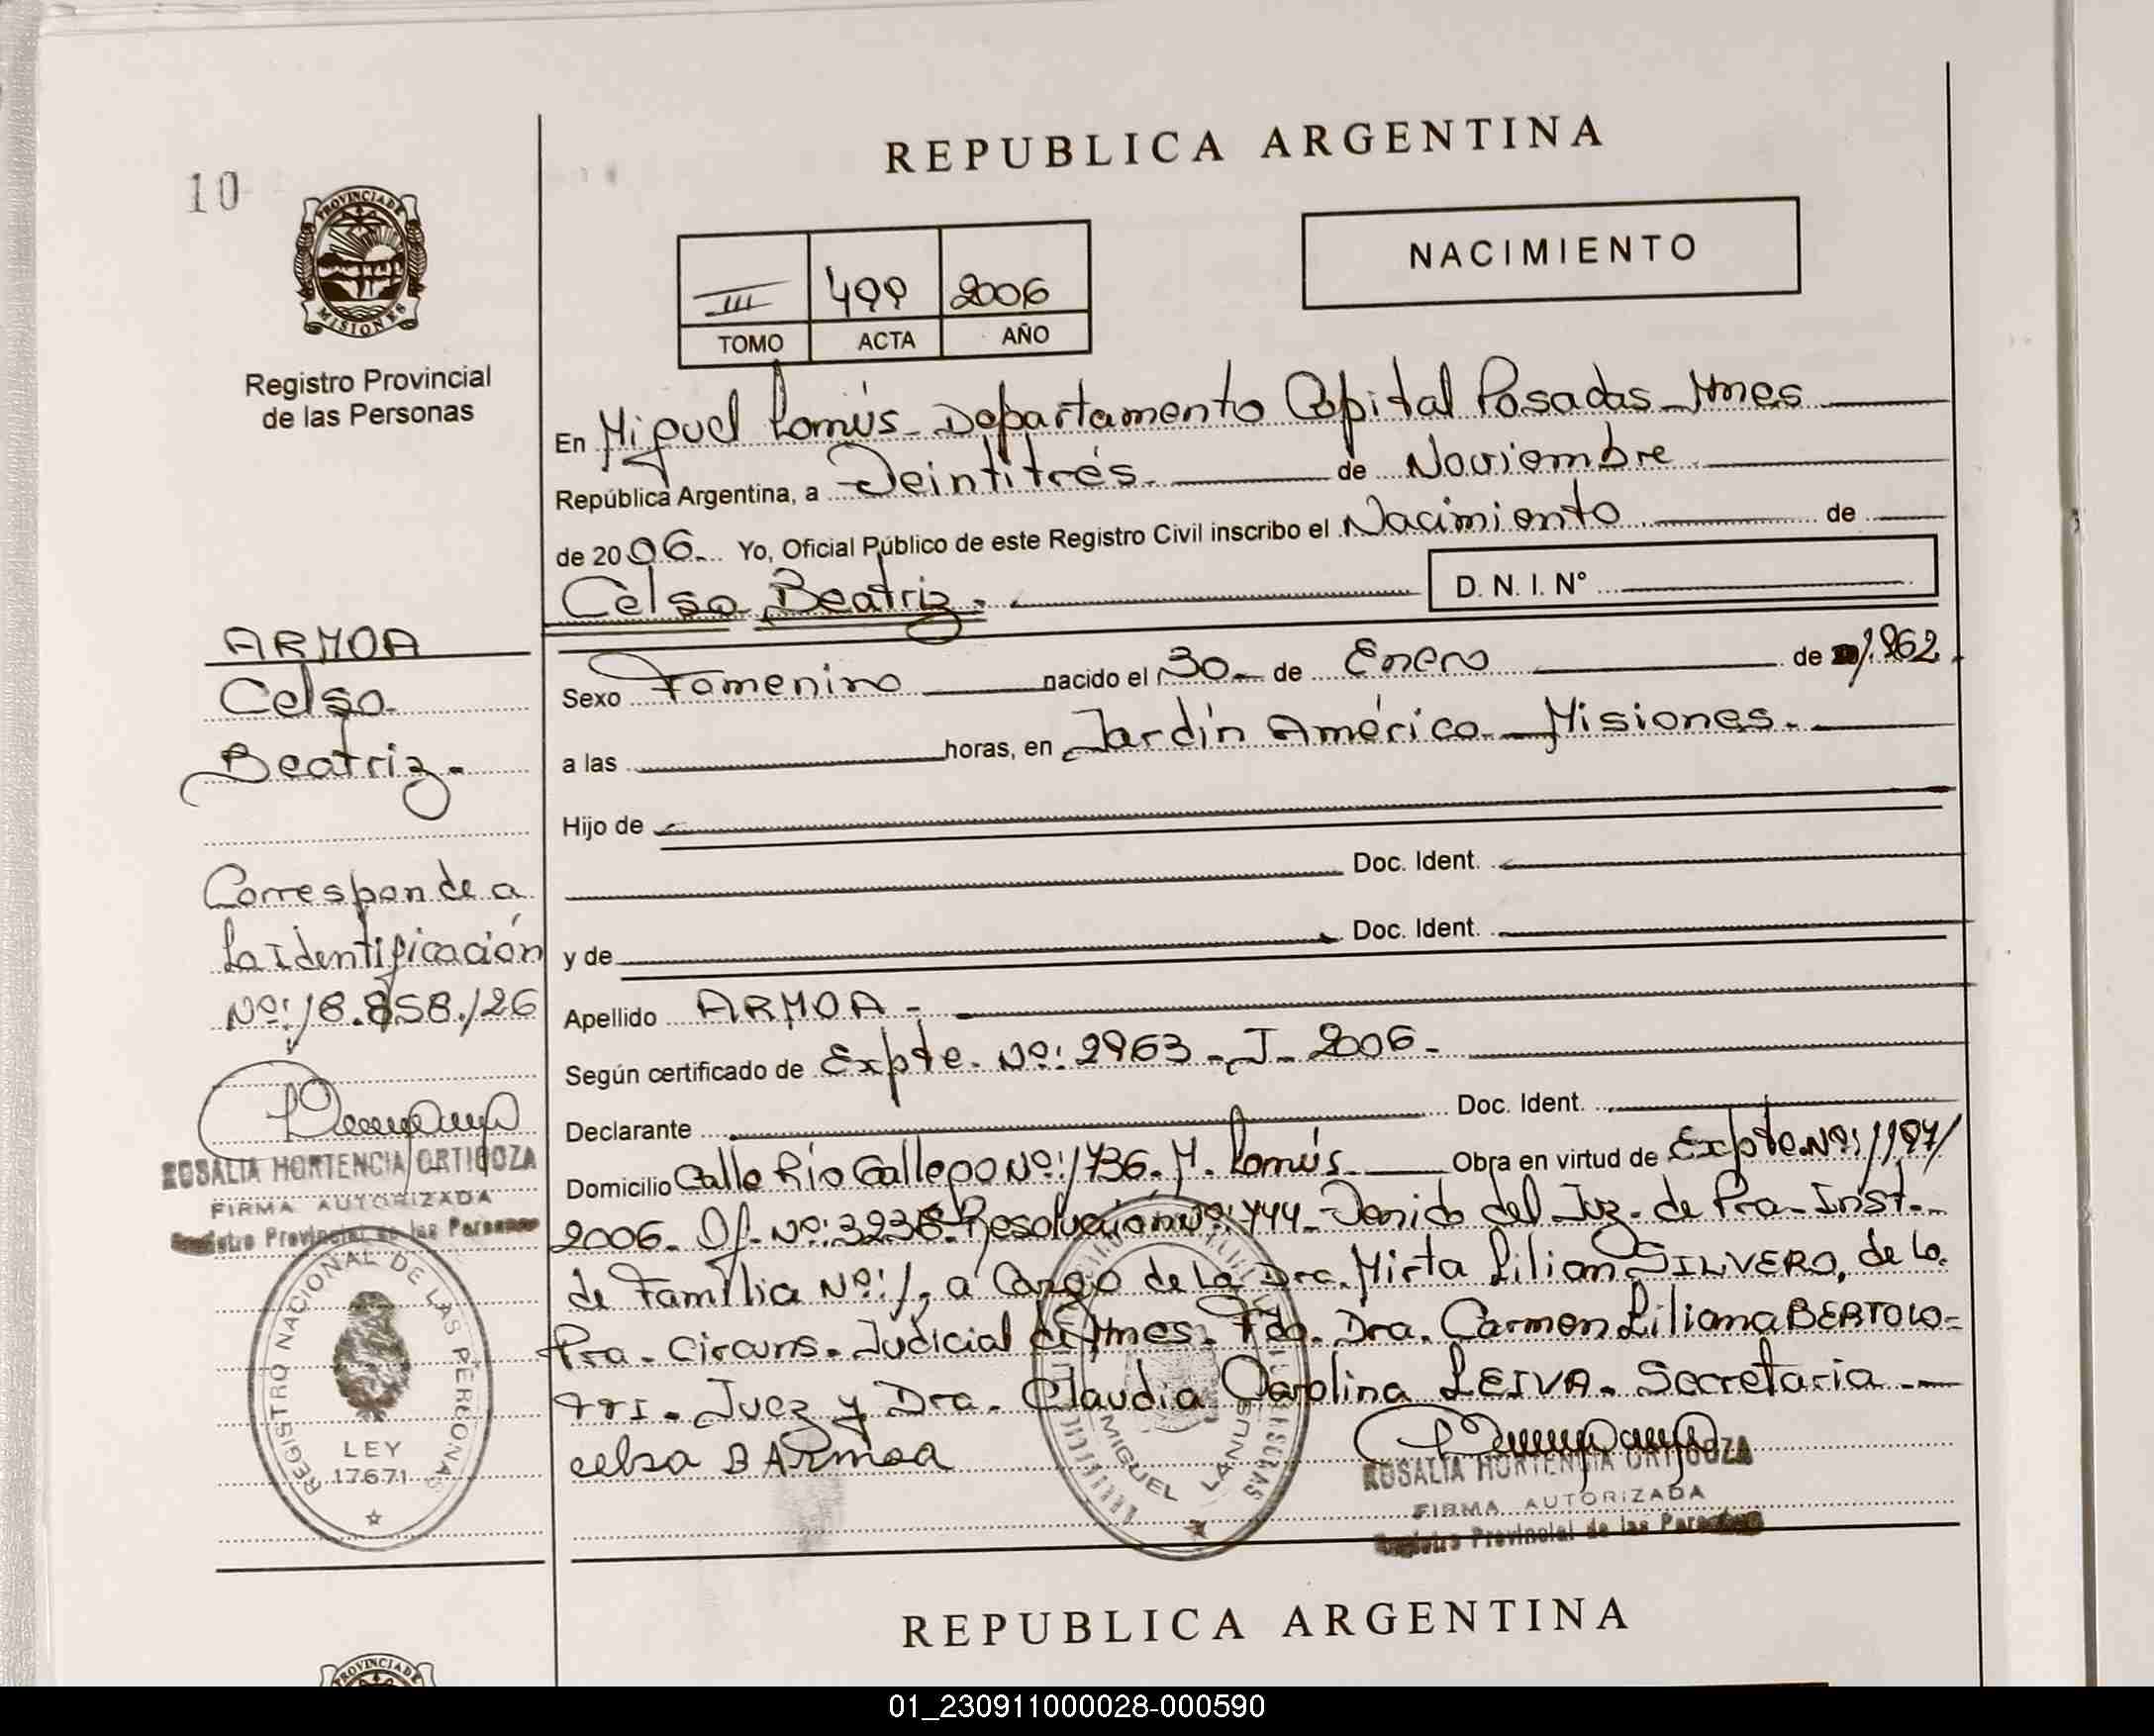 REPUBLICA ARGENTINA
10
PROVINCIA DE
MISIONES
Registro Provincial
de las Personas
NACIMIENTO
III 499 2006
TOMO ACTA AÑO
En Miguel Lanús - Departamento Capital Posadas - Mnes
República Argentina, a Veintitrés - de Noviembre
de 2006. Yo, Oficial Público de este Registro Civil inscribo el Nacimiento de
Celsa Beatriz.
D. N. I. N°
ARMOA
Celsa
Beatriz.-
Corresponde a
La Identificación
Nº: 18.858.126
ROSALIA HORTENCIA ORTIGOZA
FIRMA AUTORIZADA
Registro Provincial de las Personas
REGISTRO NACIONAL DE LAS PERSONAS
LEY
17671
Sexo Femenino nacido el 30 - de Enero de 1.962.
a las horas, en Jardín América - Misiones.-
Hijo de
Doc. Ident.
y de Doc. Ident.
Apellido ARMOA -
Según certificado de Expte. Nº: 2963 - J - 2006 -
Declarante Doc. Ident.
Domicilio Calle Río Gallego Nº: 1736. M. Lanús. Obra en virtud de Expte. Nº: 1197/
2006 - Of. Nº: 3236 - Resolución Nº: 444 - Venido del Juz. de Pra. Inst.
de Familia Nº: 1, a Cargo de La Dra. Mirta Lilian SILVERO, de la
Pra. Circuns. Judicial de Mnes. Fdo. Dra. Carmen Liliana BERTOLO=
TTI. Juez y Dra. Claudia Carolina LEIVA. Secretaria.-
celsa B Armoa
MIGUEL LANUS
ROSALIA HORTENCIA ORTIGOZA
FIRMA AUTORIZADA
Registro Provincial de las Personas
REPUBLICA ARGENTINA
PROVINCIA DE
01_230911000028-000590